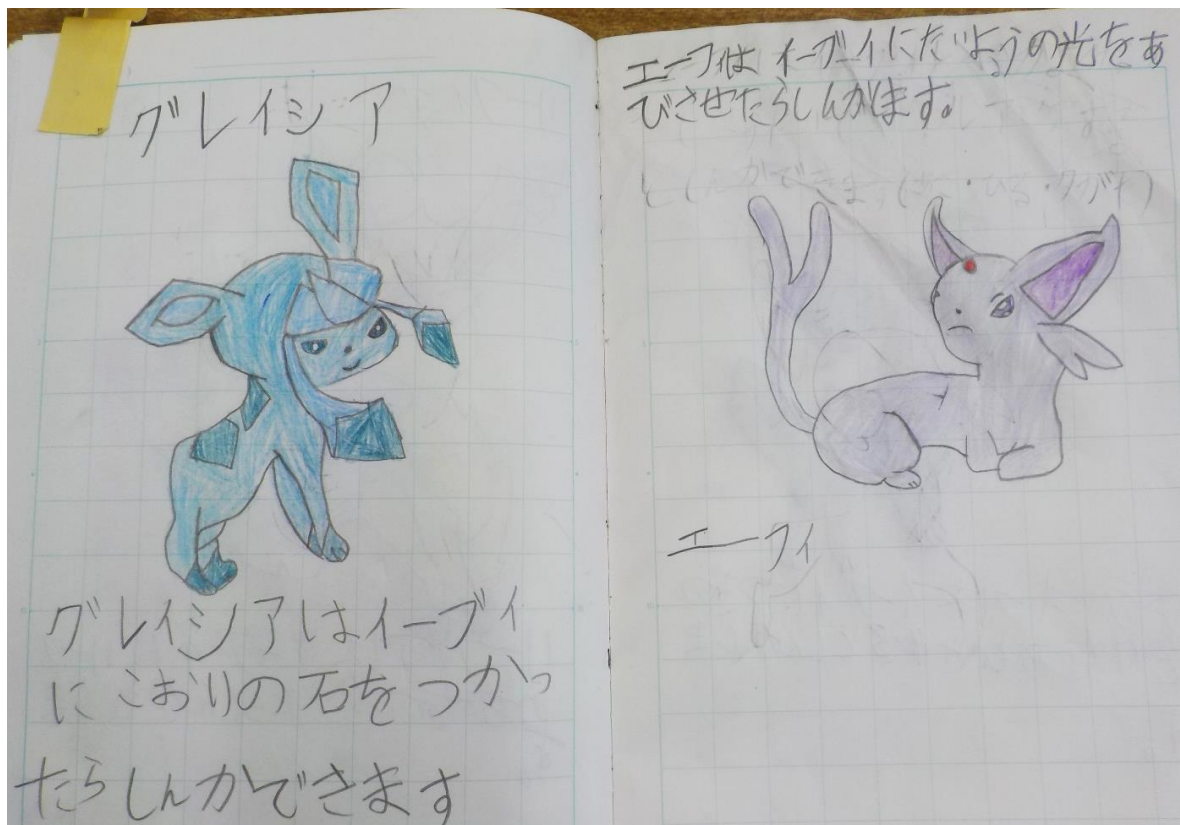 グレイシア
グレイシアはイーブイ
にこおりの石をつかっ
たらしんかできます
エーフィは イーブイにたいようの光をあ
びさせたらしんかます。
エーフィ